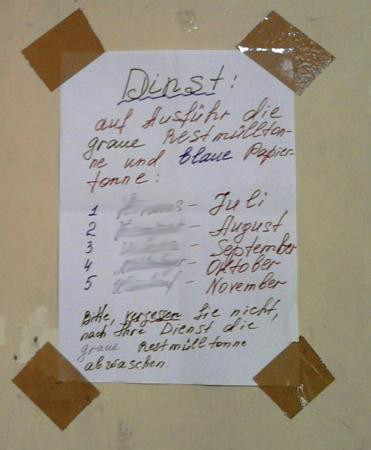 Dinst:
auf Ausführ die
graue Restmüllton-
ne und blaue Papier-
tonne:
1 - Juli
2 - August
3 - September
4 - Oktober
5 - November
Bitte, vergessen Sie nicht,
nach Ihre Dienst die
graue Restmülltonne
abwaschen.